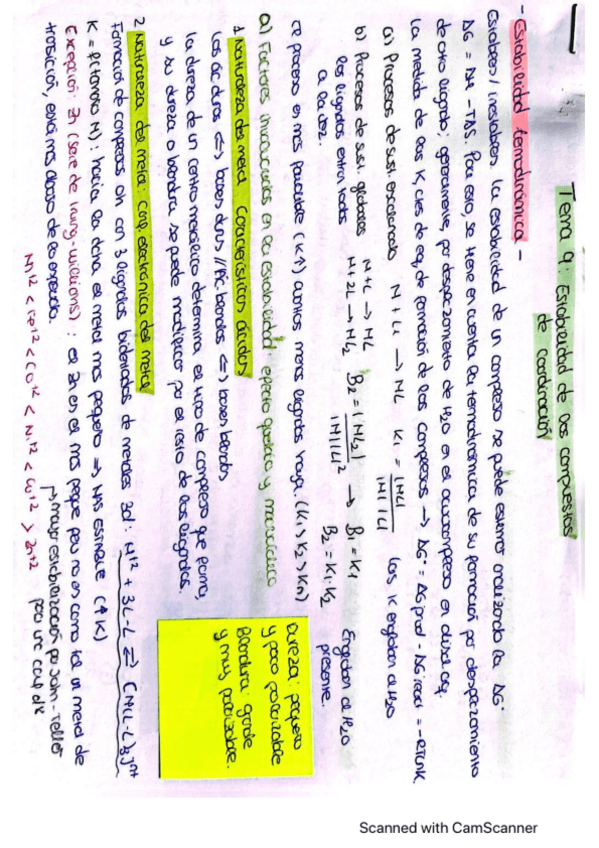 Tema 9: Estabilidad de los compuestos
de coordinación
- Estabilidad termodinámica -
Estables / inestables. La estabilidad de un complejo se puede estimar analizando la ΔG°
ΔG = ΔH - TΔS. Para esto, se tiene en cuenta la termodinámica de su formación por desplazamiento
de otro ligando; generalmente, por desplazamiento de H2O en el acuocomplejo en disol. aq.
La medida de las K, ctes de eq, de formación de los complejos → ΔG° = ΔG prod - ΔG react = -RTlnK.
a) Procesos de sust. escalonada M + L → ML K1 = |ML| / |M||L| las K engloban al H2O
b) Procesos de sust. globales M + L → ML B2 = |ML2| / |M||L|² → B1 = K1 Engloban al H2O
los ligandos entran todos M + 2L → ML2 B2 = K1·K2 presente.
a la vez.
el proceso es mas favorable (K↑) cuantos menos ligandos haya. (K1 > K2 > Kn)
a) Factores involucrados en la estabilidad: efecto quelato y macrocíclico
1. Naturaleza del metal. Características ácidas
los ác duros ⇔ bases duras // ác. blandos ⇔ bases blandas
la dureza de un centro metálico determina el tipo de complejo que forma,
y su dureza o blandura se puede modificar por el resto de los ligandos.
Dureza: pequeño
y poco polarizable
Blandura: grande
y muy polarizable.
2. Naturaleza del metal: conf. electrónica del metal
Formación de complejos Oh con 3 ligandos bidentados de metales 3d: M+2 + 3L-L ⇌ [M(L-L)3]n+
K = f(tamaño M): hacia la dcha el metal mas pequeño ⇒ MAS ESTABLE (↑K)
Excepción: Zn (serie de Irving-Williams): el Zn es el mas peque pero no es como tal un metal de
transición, está mas abajo de lo esperado.
Mn+2 < Fe+2 < Co+2 < Ni+2 < Cu+2 > Zn+2
→ mayor estabilización por Jahn-Teller
para una conf d9
Scanned with CamScanner